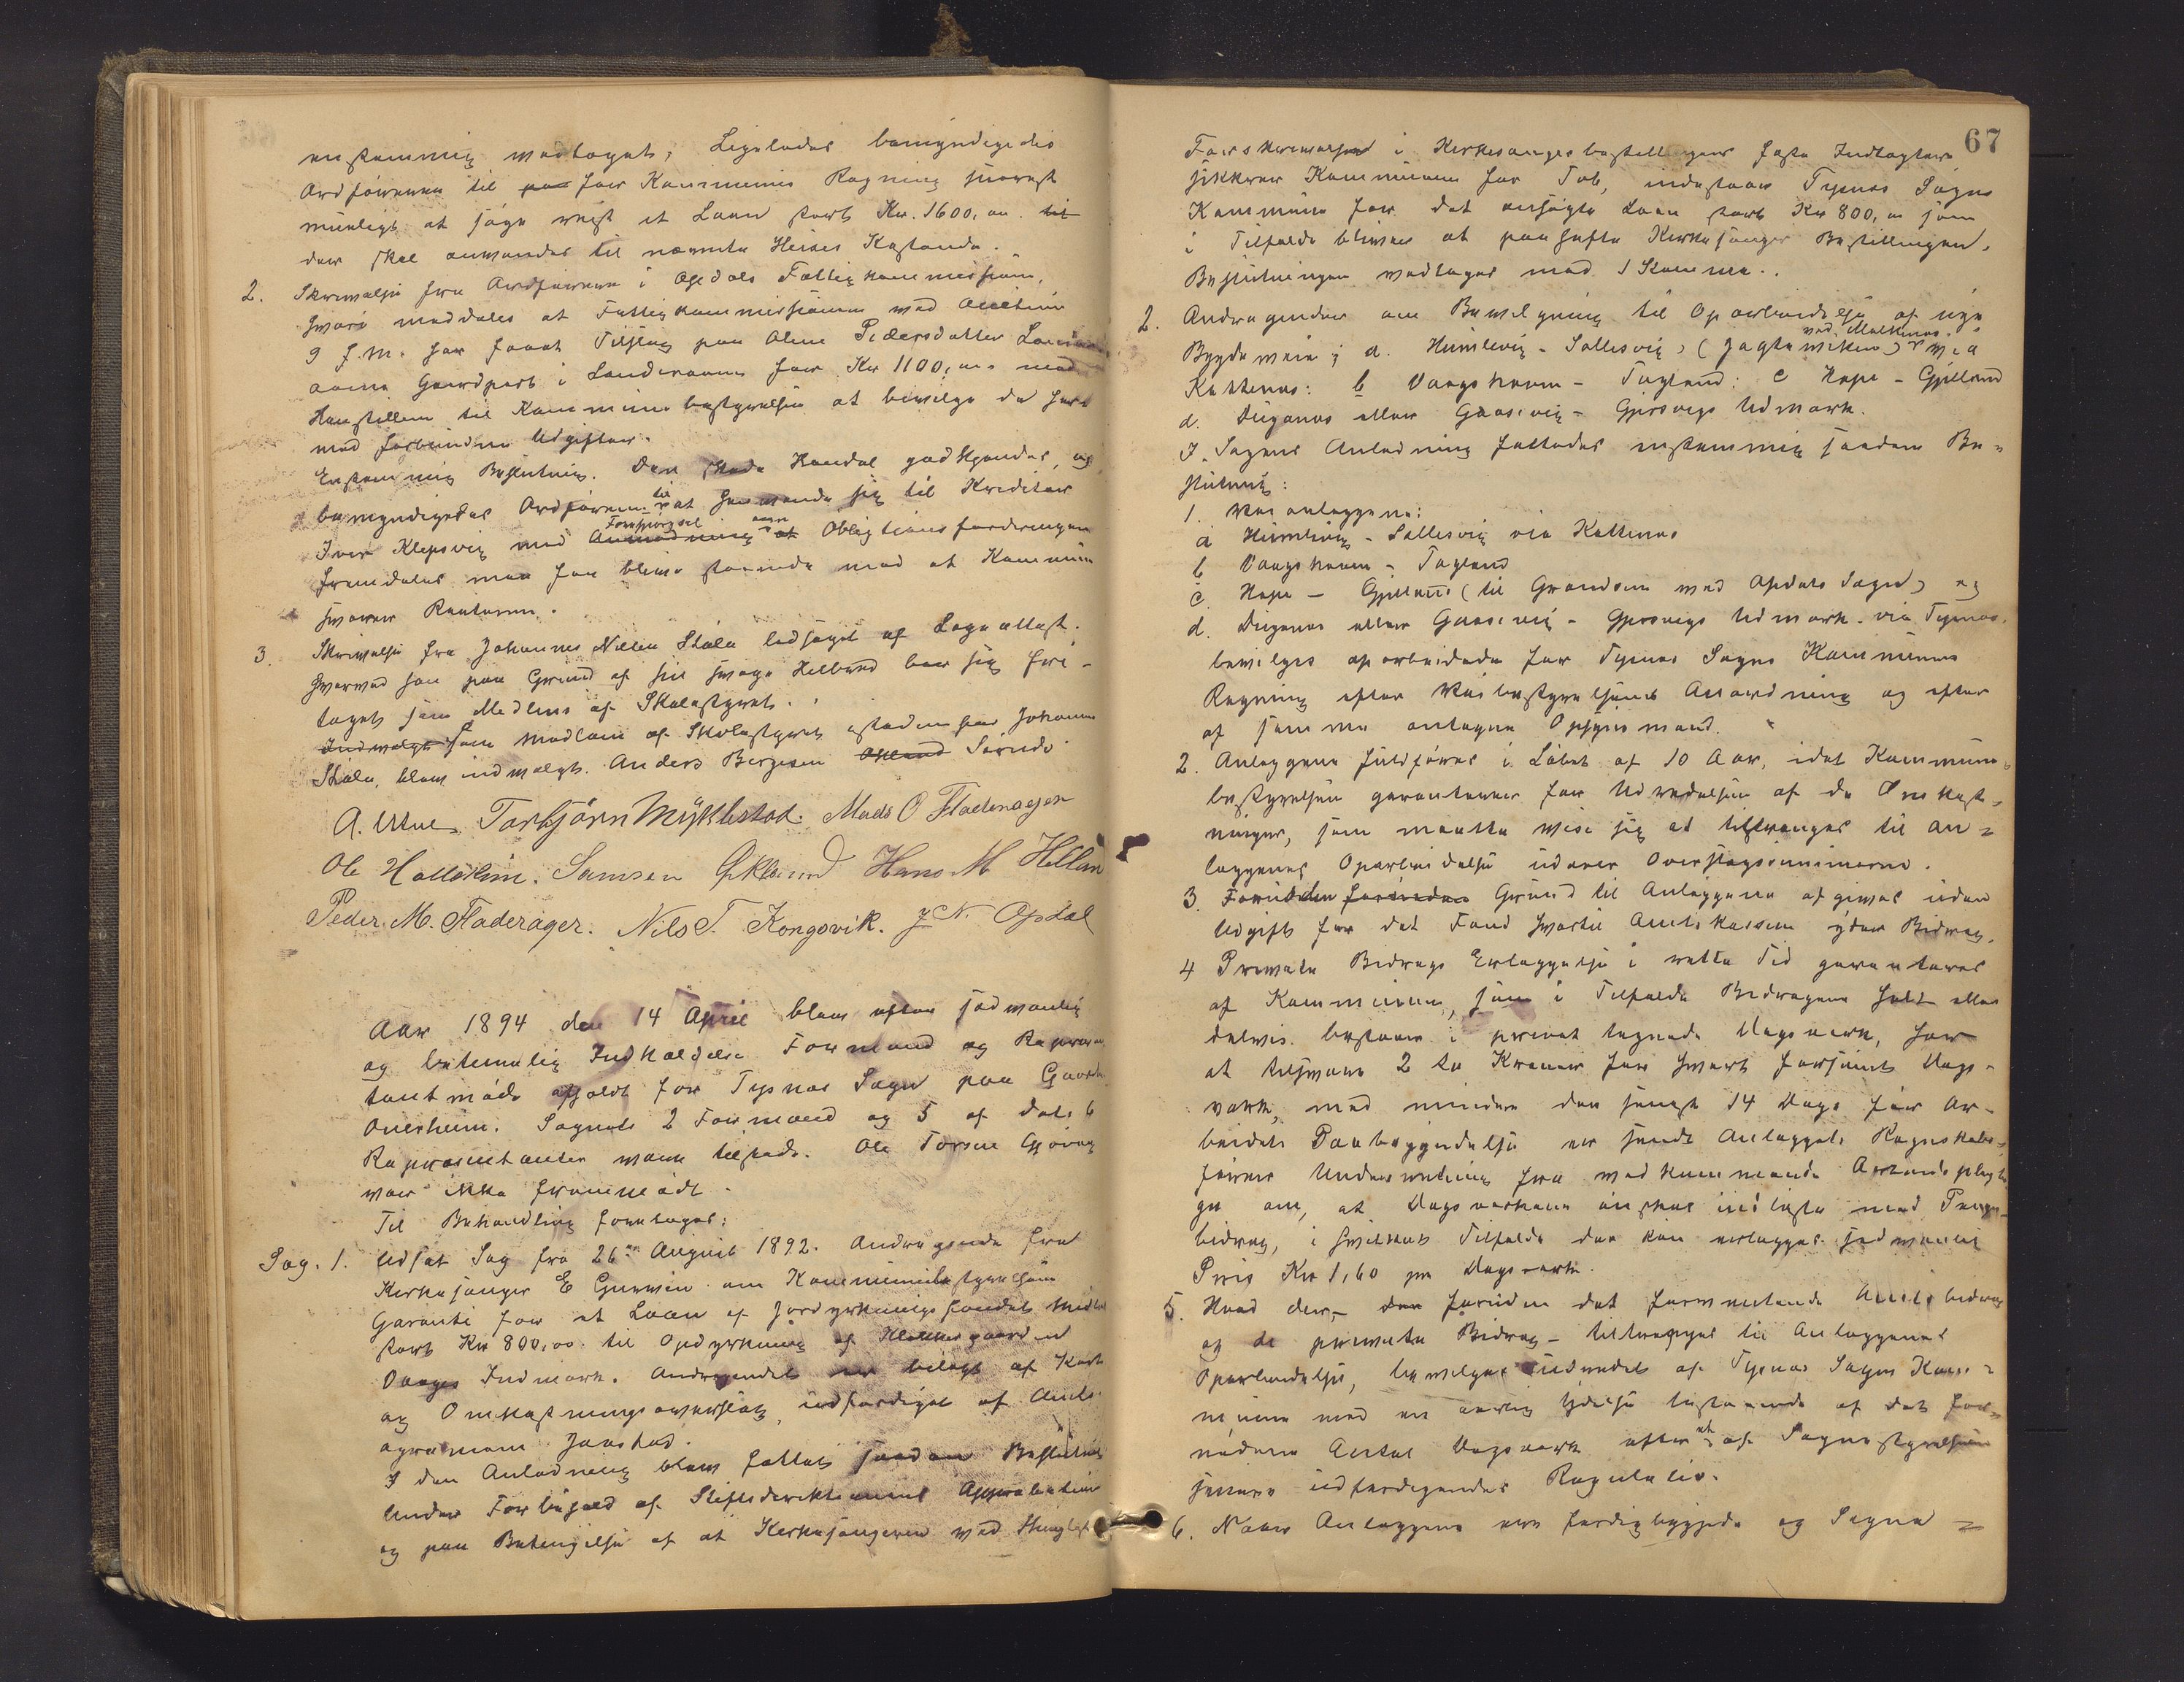 enstemmig vedtaget. Ligeledes bemyndigedes
Ordføreren til paa for Kommunens Regning snarest
muligt at søge reist et Laan stort Kr. 1600,00 til
der skal anvendes til nævnte Heises Kostende.
2. Skrivelse fra Ordføreren i Opdals Fattigkommission,
hvori meddeles at Fattigkommissionen ved Auktion
9 f.M. har faaet Tilslag paa Aline Pedersdatter
Gaardpart i Landeraaen for Kr 1100,00 med
Henstillen til Kommunebestyrelsen at bevilge de her
med forbundne Udgifter.
Enstemmig Beslutning. Den skede Handel godkjendes, og
bemyndigedes Ordføreren til at henvende sig til Kreditor
Iver Klepsvig med Anmodning Forespørgsel om at Obligationsfordringen
fremdeles maa faa blive staaende mod at Kommunen
svarer Renterne.
3. Skrivelse fra Johannes Nilsen Skaale ledsaget af Lægeattest.
hvorved han paa Grund af sin svage Helbred beer sig fri-
taget som Medlem af Skolestyret.
Indvalgt som medlem af Skolestyret istedenfor Johannes
Skaale, blev indvalgt. Anders Bergesen Økland Sørnes
A. Uttne Torbjörn Myklestad. Mads O Fladeragen
Ole Hatleheim. Samson Økland Hans M Helland
Peder M. Fladerager. Nils T. Kongsvik. J N. Opdal
Aar 1894 den 14 April blev efter sedvanlig
og betimelig Indkaldelse Formænd og Repræsen
tantmøde afholdt for Tysnæs Sogn paa Gaarden
Onerheim. Sognets 2 Formænd og 5 af dets 6
Repræsentanter vare tilstede. Ole Torsen Gjøvaag
var ikke fremmødt.
Til Behandling foretoges:
Sag. 1. Udsat Sag fra 26de August 1892. Andragende fra
Kirkesanger E Gurvin om Kommunebestyrelsens
Garanti for et Laan af Jorddyrkningsfondets Midler
stort Kr 800,00. til Opdyrkning af Klokkergaarden
Vaages Indmark. Andragendet er bilagt af Kart
og Omkostningsoverslag, udfærdiget af Amts
agronom Jaastad.
I den Anledning blev fattet saadan Beslutning
Under Forbehold af Stiftsdirektionens Approbation
og paa Betingelse af at Kirkesangeren ved
67
Forskrivelse i Kirkesangerbestillingens faste Indtægter
sikkrer Kommunen for Tab, indestaar Tysnæs Sogns
Kommune for det ansøgte Laan stort Kr 800,00 som
i Tilfælde bliver at paahefte Kirkesanger Bestillingen.
Beslutningen vedtoges med 1 Stemme.
2. Andragender om Bevilgning til Oparbeidelse af nye
Bygdeveie; a. Humlevig - Sollesvig, (Jagtevikene) ved Malkenes via
Kattenes: b Vaagshavn - Tageland: c Hope - Gjelland
d. Dugenes eller Gaasevig - Gjersvigs Udmark.
I Sagens Anledning fattedes enstemmig saadan Be-
slutning:
1. Veianlæggene:
a Humlevig - Sollesvig via Kattenes
b Vaagshavn - Tageland
c. Hope - Gjelland (til Grændsen med Opdals Sogn) og
d. Dugenes eller Gaasevig - Gjersvigs Udmark via Tysnæs,
bevilges oparbeidede for Tysnæs Sogns Kommunes
Regning efter Veibestyrelsens Anordning og efter
af samme antagne Opsynsmænd.
2. Anlæggene fuldføres i Løbet af 10 Aar, idet Kommune-
bestyrelsen garanterer for Udredelsen af de Omkost-
ninger, som maatte vise sig at tiltrænges til An-
læggenes Oparbeidelse udover Overslagssummerne.
3. Fornøden fornøden Grund til Anlæggene afgives uden
Udgift for det Fond hvortil Amtskassen yder Bidrag.
4 Private Bidrags Erlæggelse i rette Tid garanteres
af Kommunen, som i Tilfælde Bidragene helt eller
delvis bestaar i privat tegnede Dagsværk, har
at tilsvare 2 to Kroner for hvert forsømt Dags-
værk, med mindre der senest 14 Dage før Ar-
beidets Paabegyndelse er sendt Anlæggets Regnskabs-
fører Underretning fra vedkommende Arbeidsplig
ge om, at Dagsværkene ønskes indløste med Penge-
bidrag, i hvilket Tilfælde der kan erlægges sedvanlig
Pris Kr 1,60 pr Dagsværk.
5. Hvad der, - der foruden det forventende Amtsbidrag
og de private Bidrag - tiltrænges til Anlæggenes
Oparbeidelse, bevilges udredet af Tysnæs Sogns Kom-
mune med en aarlig Ydelse bestaaende af det for-
nødne Antal Dagsværk efter et af Sognestyrelsen
senere udfærdigendes Regulativ.
6. Naar Anlæggene ere færdigbyggede og Sogne-